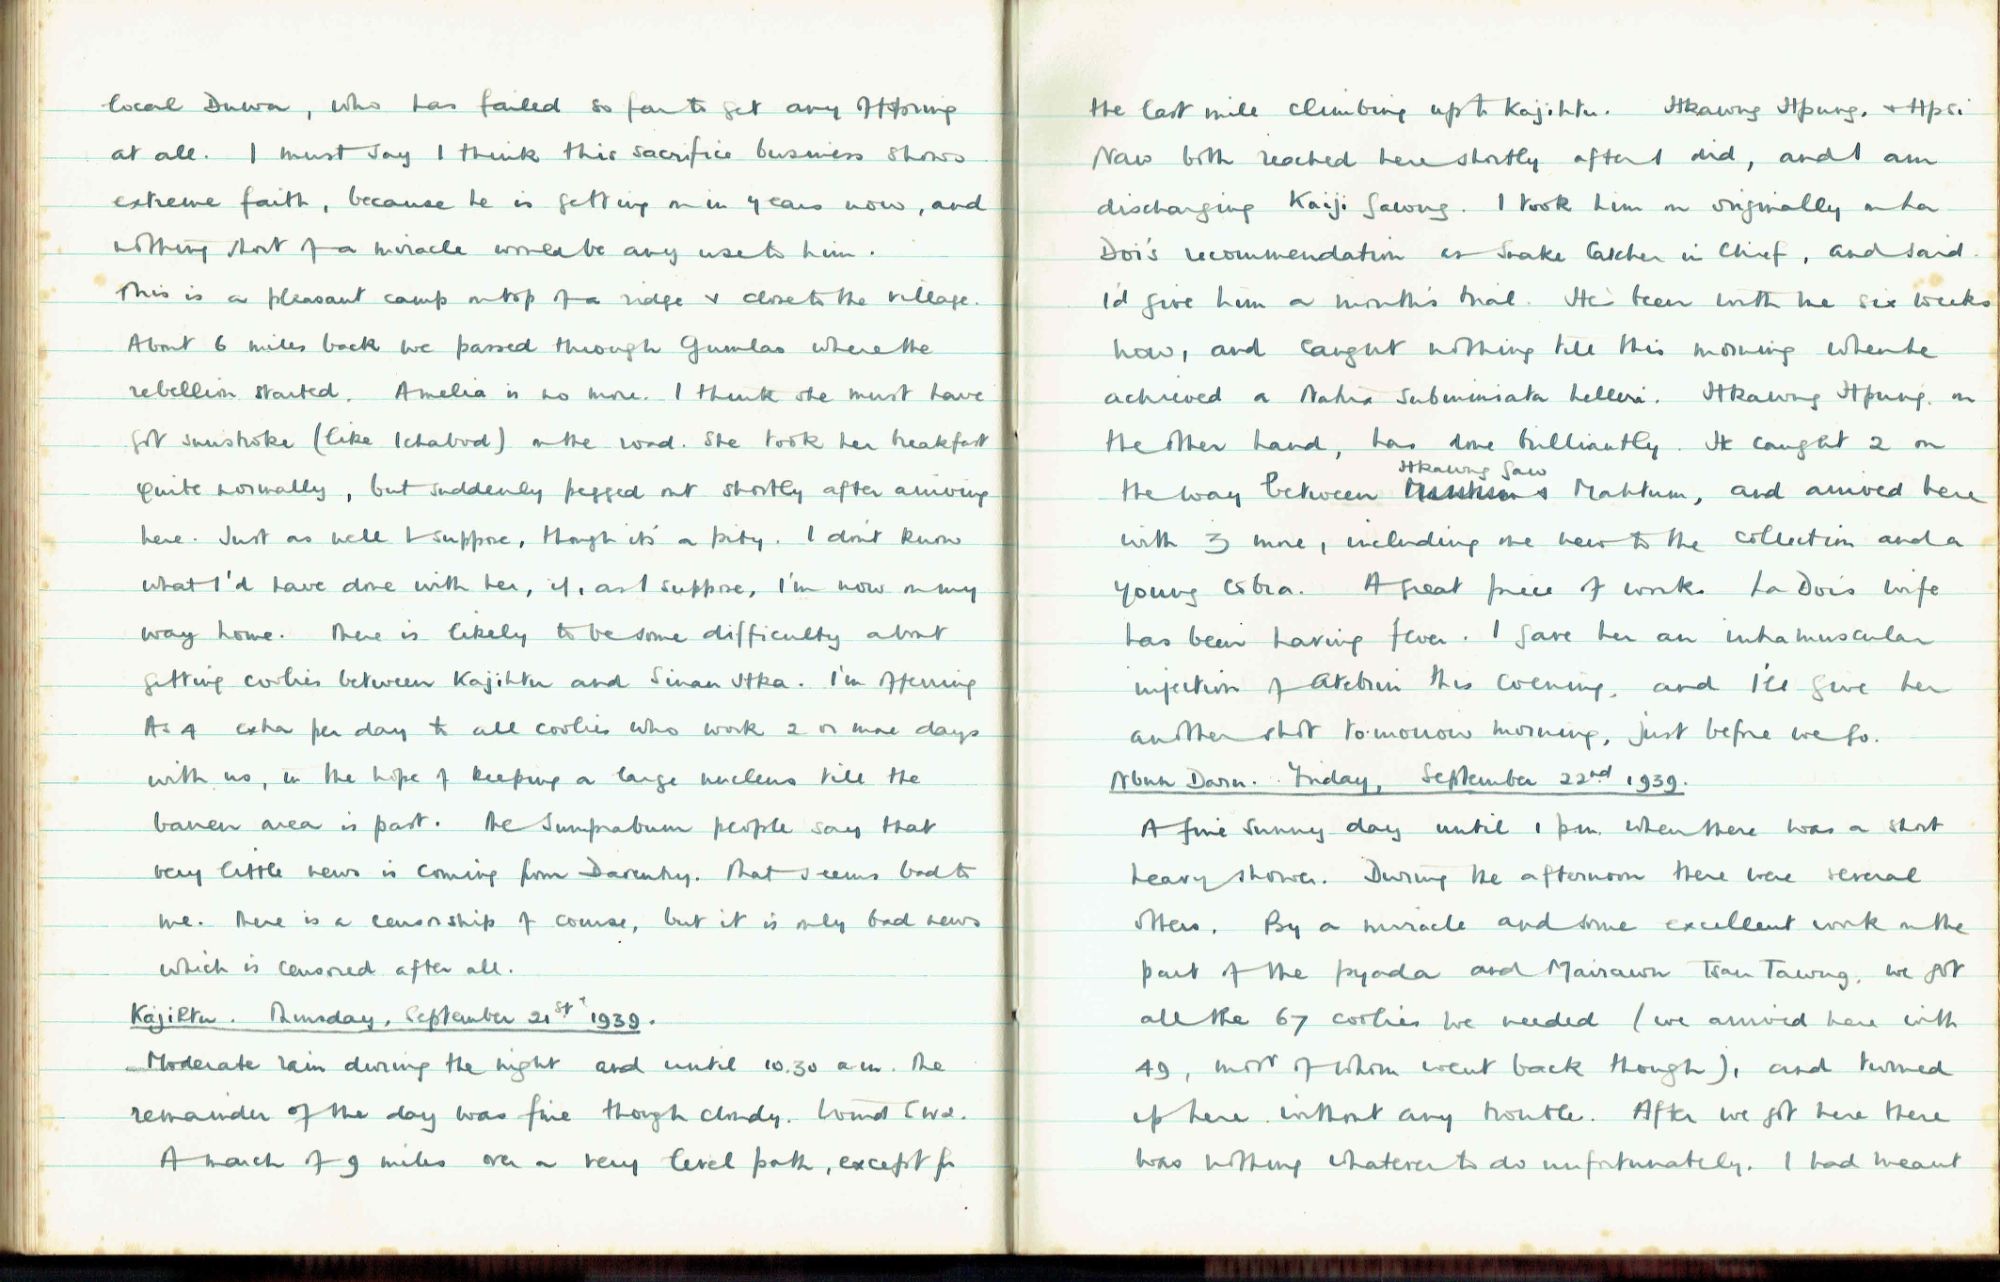 local Duwa, who has failed so far to get any Hpring
at all. I must say I think this sacrifice business shows
extreme faith, because he is getting on in years now, and
nothing short of a miracle would be any use to him.
This is a pleasant camp on top of a ridge & close to the village.
About 6 miles back we passed through Gumlao where the
rebellion started. Amelia is no more. I think she must have
got sunstroke (like Ichabod) on the road. She took her breakfast
quite normally, but suddenly pegged out shortly after arriving
here. Just as well I suppose, though it's a pity. I don't know
what I'd have done with her, if, as I suppose, I'm now on my
way home. There is likely to be some difficulty about
getting coolies between Kajihtu and Sinan Hka. I'm offering
As 4 extra per day to all coolies who work 2 or more days
with us, in the hope of keeping a large nucleus till the
barren area is past. The Sumprabum people say that
very little news is coming from Daventry. That seems bad to
me. There is a censorship of course, but it is only bad news
which is censored after all.
Kajihtu. Thursday, September 21st 1939.
Moderate rain during the night and until 10.30 am. The
remainder of the day was fine though cloudy. Wind SW2.
A march of 9 miles over a very level path, except for
the last mile climbing up to Kajihtu. Hkawng Hpung, & Hpsi
Naw both reached here shortly after I did, and I am
discharging Kaiji Gawng. I took him on originally on ha
Doi's recommendation as Snake Catcher in Chief, and said
I'd give him a month's trial. He's been with me six weeks
now, and caught nothing till this morning when he
achieved a Natrix subminiata helleri. Hkawng Hpung, on
the other hand, has done brilliantly. He caught 2 on
the way between Hkawng Gaw & Mahtum, and arrived here
with 3 more, including one new to the collection and a
young cobra. A great piece of work. ha Doi's wife
has been having fever. I gave her an intramuscular
injection of Atebrin this evening, and I'll give her
another shot to-morrow morning, just before we go.
Nbun Daru. Friday, September 22nd 1939.
A fine sunny day until 1 pm. when there was a short
heavy shower. During the afternoon there were several
others. By a miracle and some excellent work on the
part of the pyada and Mairawn Tsan Tawng, we got
all the 67 coolies we needed (we arrived here with
49, most of whom went back though), and turned
up here without any trouble. After we got here there
was nothing whatever to do unfortunately. I had meant